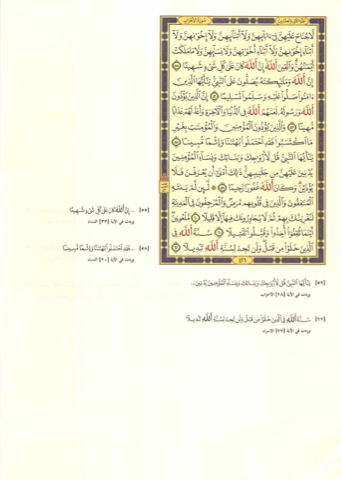 لَّا جُنَاحَ عَلَيْهِنَّ فِىٓ ءَابَآئِهِنَّ وَلَآ أَبْنَآئِهِنَّ وَلَآ إِخْوَٰنِهِنَّ وَلَآ
أَبْنَآءِ إِخْوَٰنِهِنَّ وَلَآ أَبْنَآءِ أَخَوَٰتِهِنَّ وَلَا نِسَآئِهِنَّ وَلَا مَا مَلَكَتْ
أَيْمَٰنُهُنَّ وَٱتَّقِينَ ٱللَّهَ إِنَّ ٱللَّهَ كَانَ عَلَىٰ كُلِّ شَىْءٍ شَهِيدًا ۝٥٥
إِنَّ ٱللَّهَ وَمَلَٰٓئِكَتَهُۥ يُصَلُّونَ عَلَى ٱلنَّبِىِّ يَٰٓأَيُّهَا ٱلَّذِينَ
ءَامَنُوا۟ صَلُّوا۟ عَلَيْهِ وَسَلِّمُوا۟ تَسْلِيمًا ۝٥٦ إِنَّ ٱلَّذِينَ يُؤْذُونَ
ٱللَّهَ وَرَسُولَهُۥ لَعَنَهُمُ ٱللَّهُ فِى ٱلدُّنْيَا وَٱلْءَاخِرَةِ وَأَعَدَّ لَهُمْ عَذَابًا
مُّهِينًا ۝٥٧ وَٱلَّذِينَ يُؤْذُونَ ٱلْمُؤْمِنِينَ وَٱلْمُؤْمِنَٰتِ بِغَيْرِ
مَا ٱكْتَسَبُوا۟ فَقَدِ ٱحْتَمَلُوا۟ بُهْتَٰنًا وَإِثْمًا مُّبِينًا ۝٥٨
يَٰٓأَيُّهَا ٱلنَّبِىُّ قُل لِّأَزْوَٰجِكَ وَبَنَاتِكَ وَنِسَآءِ ٱلْمُؤْمِنِينَ
يُدْنِينَ عَلَيْهِنَّ مِن جَلَٰبِيبِهِنَّ ذَٰلِكَ أَدْنَىٰٓ أَن يُعْرَفْنَ فَلَا
يُؤْذَيْنَ وَكَانَ ٱللَّهُ غَفُورًا رَّحِيمًا ۝٥٩ لَّئِن لَّمْ يَنتَهِ
ٱلْمُنَٰفِقُونَ وَٱلَّذِينَ فِى قُلُوبِهِم مَّرَضٌ وَٱلْمُرْجِفُونَ فِى ٱلْمَدِينَةِ
لَنُغْرِيَنَّكَ بِهِمْ ثُمَّ لَا يُجَاوِرُونَكَ فِيهَآ إِلَّا قَلِيلًا ۝٦٠ مَّلْعُونِينَ
أَيْنَمَا ثُقِفُوٓا۟ أُخِذُوا۟ وَقُتِّلُوا۟ تَقْتِيلًا ۝٦١ سُنَّةَ ٱللَّهِ فِى
ٱلَّذِينَ خَلَوْا۟ مِن قَبْلُ وَلَن تَجِدَ لِسُنَّةِ ٱللَّهِ تَبْدِيلًا ۝٦٢
٤٢٦
[٥٥] ... إِنَّ ٱللَّهَ كَانَ عَلَىٰ كُلِّ شَىْءٍ شَهِيدًا
وردت في الآية [٣٣] النساء
[٥٨] ... فَقَدِ ٱحْتَمَلُوا۟ بُهْتَٰنًا وَإِثْمًا مُّبِينًا
وردت في الآية [٢٠] النساء
[٥٩] يَٰٓأَيُّهَا ٱلنَّبِىُّ قُل لِّأَزْوَٰجِكَ وَبَنَاتِكَ وَنِسَآءِ ٱلْمُؤْمِنِينَ يُدْنِينَ ...
وردت في الآية [٢٨] الأحزاب
[٦٢] سُنَّةَ ٱللَّهِ فِى ٱلَّذِينَ خَلَوْا۟ مِن قَبْلُ وَلَن تَجِدَ لِسُنَّةِ ٱللَّهِ تَبْدِيلًا